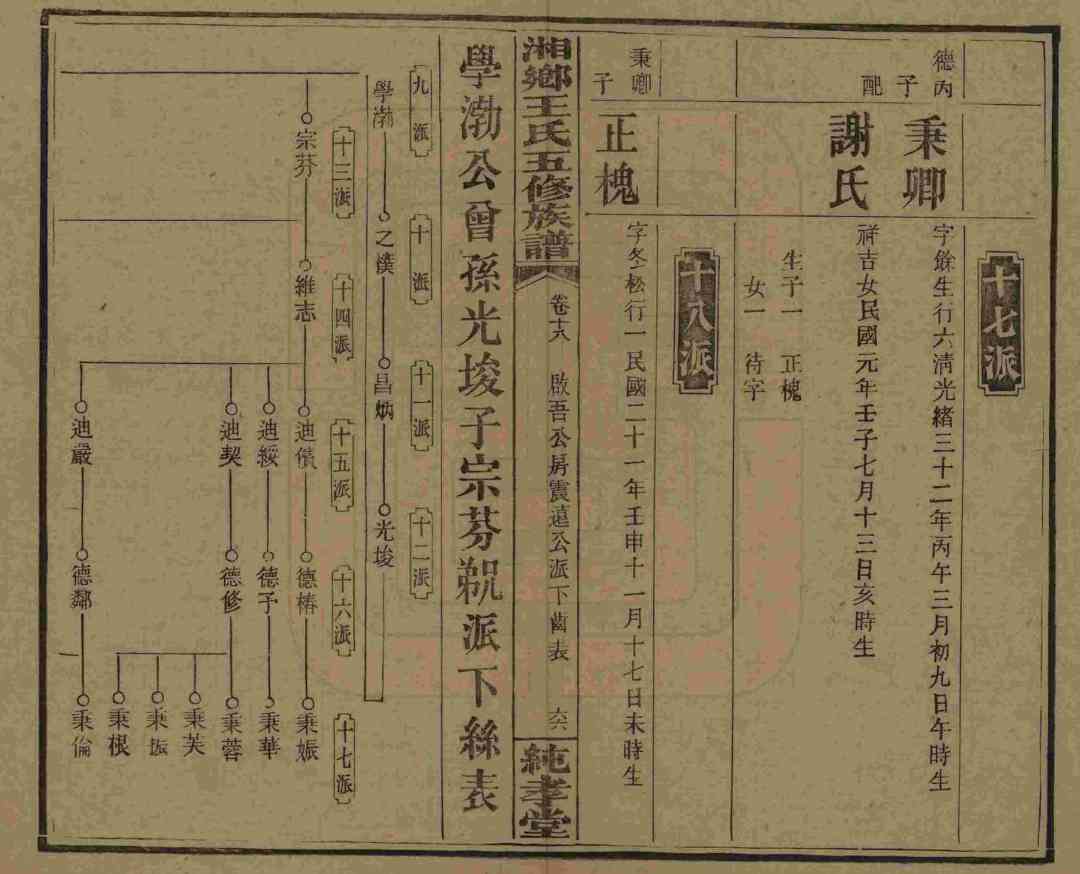 十七派
德丙子
秉卿
字餘生行六清光緒三十二年丙午三月初九日午時生
配
謝氏
祥吉女民國元年壬子七月十三日亥時生
生子一 正槐
女一 待字
十八派
秉卿子
正槐
字冬松行一民國二十一年壬申十一月十七日未時生
湘鄉王氏五修族譜
卷十八
啟吾公房震遠公派下齒表
六六
純孝堂
學渤公曾孫光埈子宗芬䝼派下絲表
九派
十派
十一派
十二派
學渤
之樸
昌炳
光埈
十三派
十四派
十五派
十六派
十七派
宗芬
維志
迪儥
德椿
秉娠
迪綏
德予
秉華
迪契
德修
秉蓉
秉芙
秉振
秉根
迪嚴
德鄰
秉倫